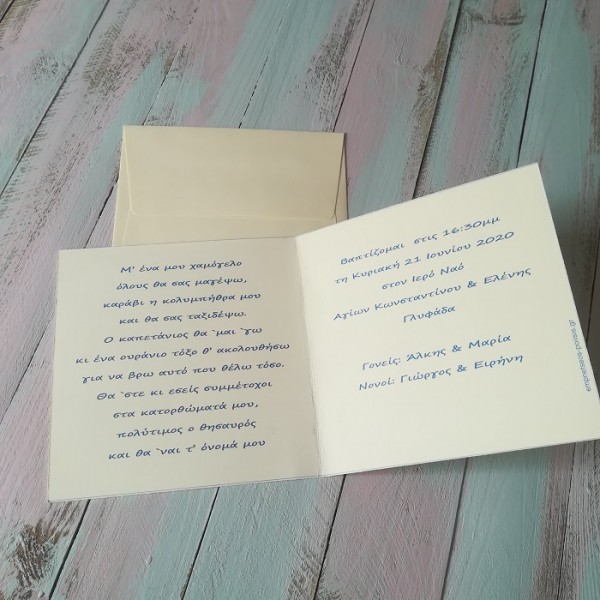 Μ' ένα μου χαμόγελο
όλους θα σας μαγέψω,
καράβι η κολυμπήθρα μου
και θα σας ταξιδέψω.
Ο καπετάνιος θα `μαι `γω
κι ένα ουράνιο τόξο θ' ακολουθήσω
για να βρω αυτό που θέλω τόσο.
Θα `στε κι εσείς συμμέτοχοι
στα κατορθώματά μου,
πολύτιμος ο θησαυρός
και θα `ναι τ' όνομά μου
Βαπτίζομαι στις 16:30μμ
τη Κυριακή 21 Ιουνίου 2020
στον Ιερό Ναό
Αγίων Κωνσταντίνου & Ελένης
Γλυφάδα
Γονείς: Άλκης & Μαρία
Νονοί: Γιώργος & Ειρήνη